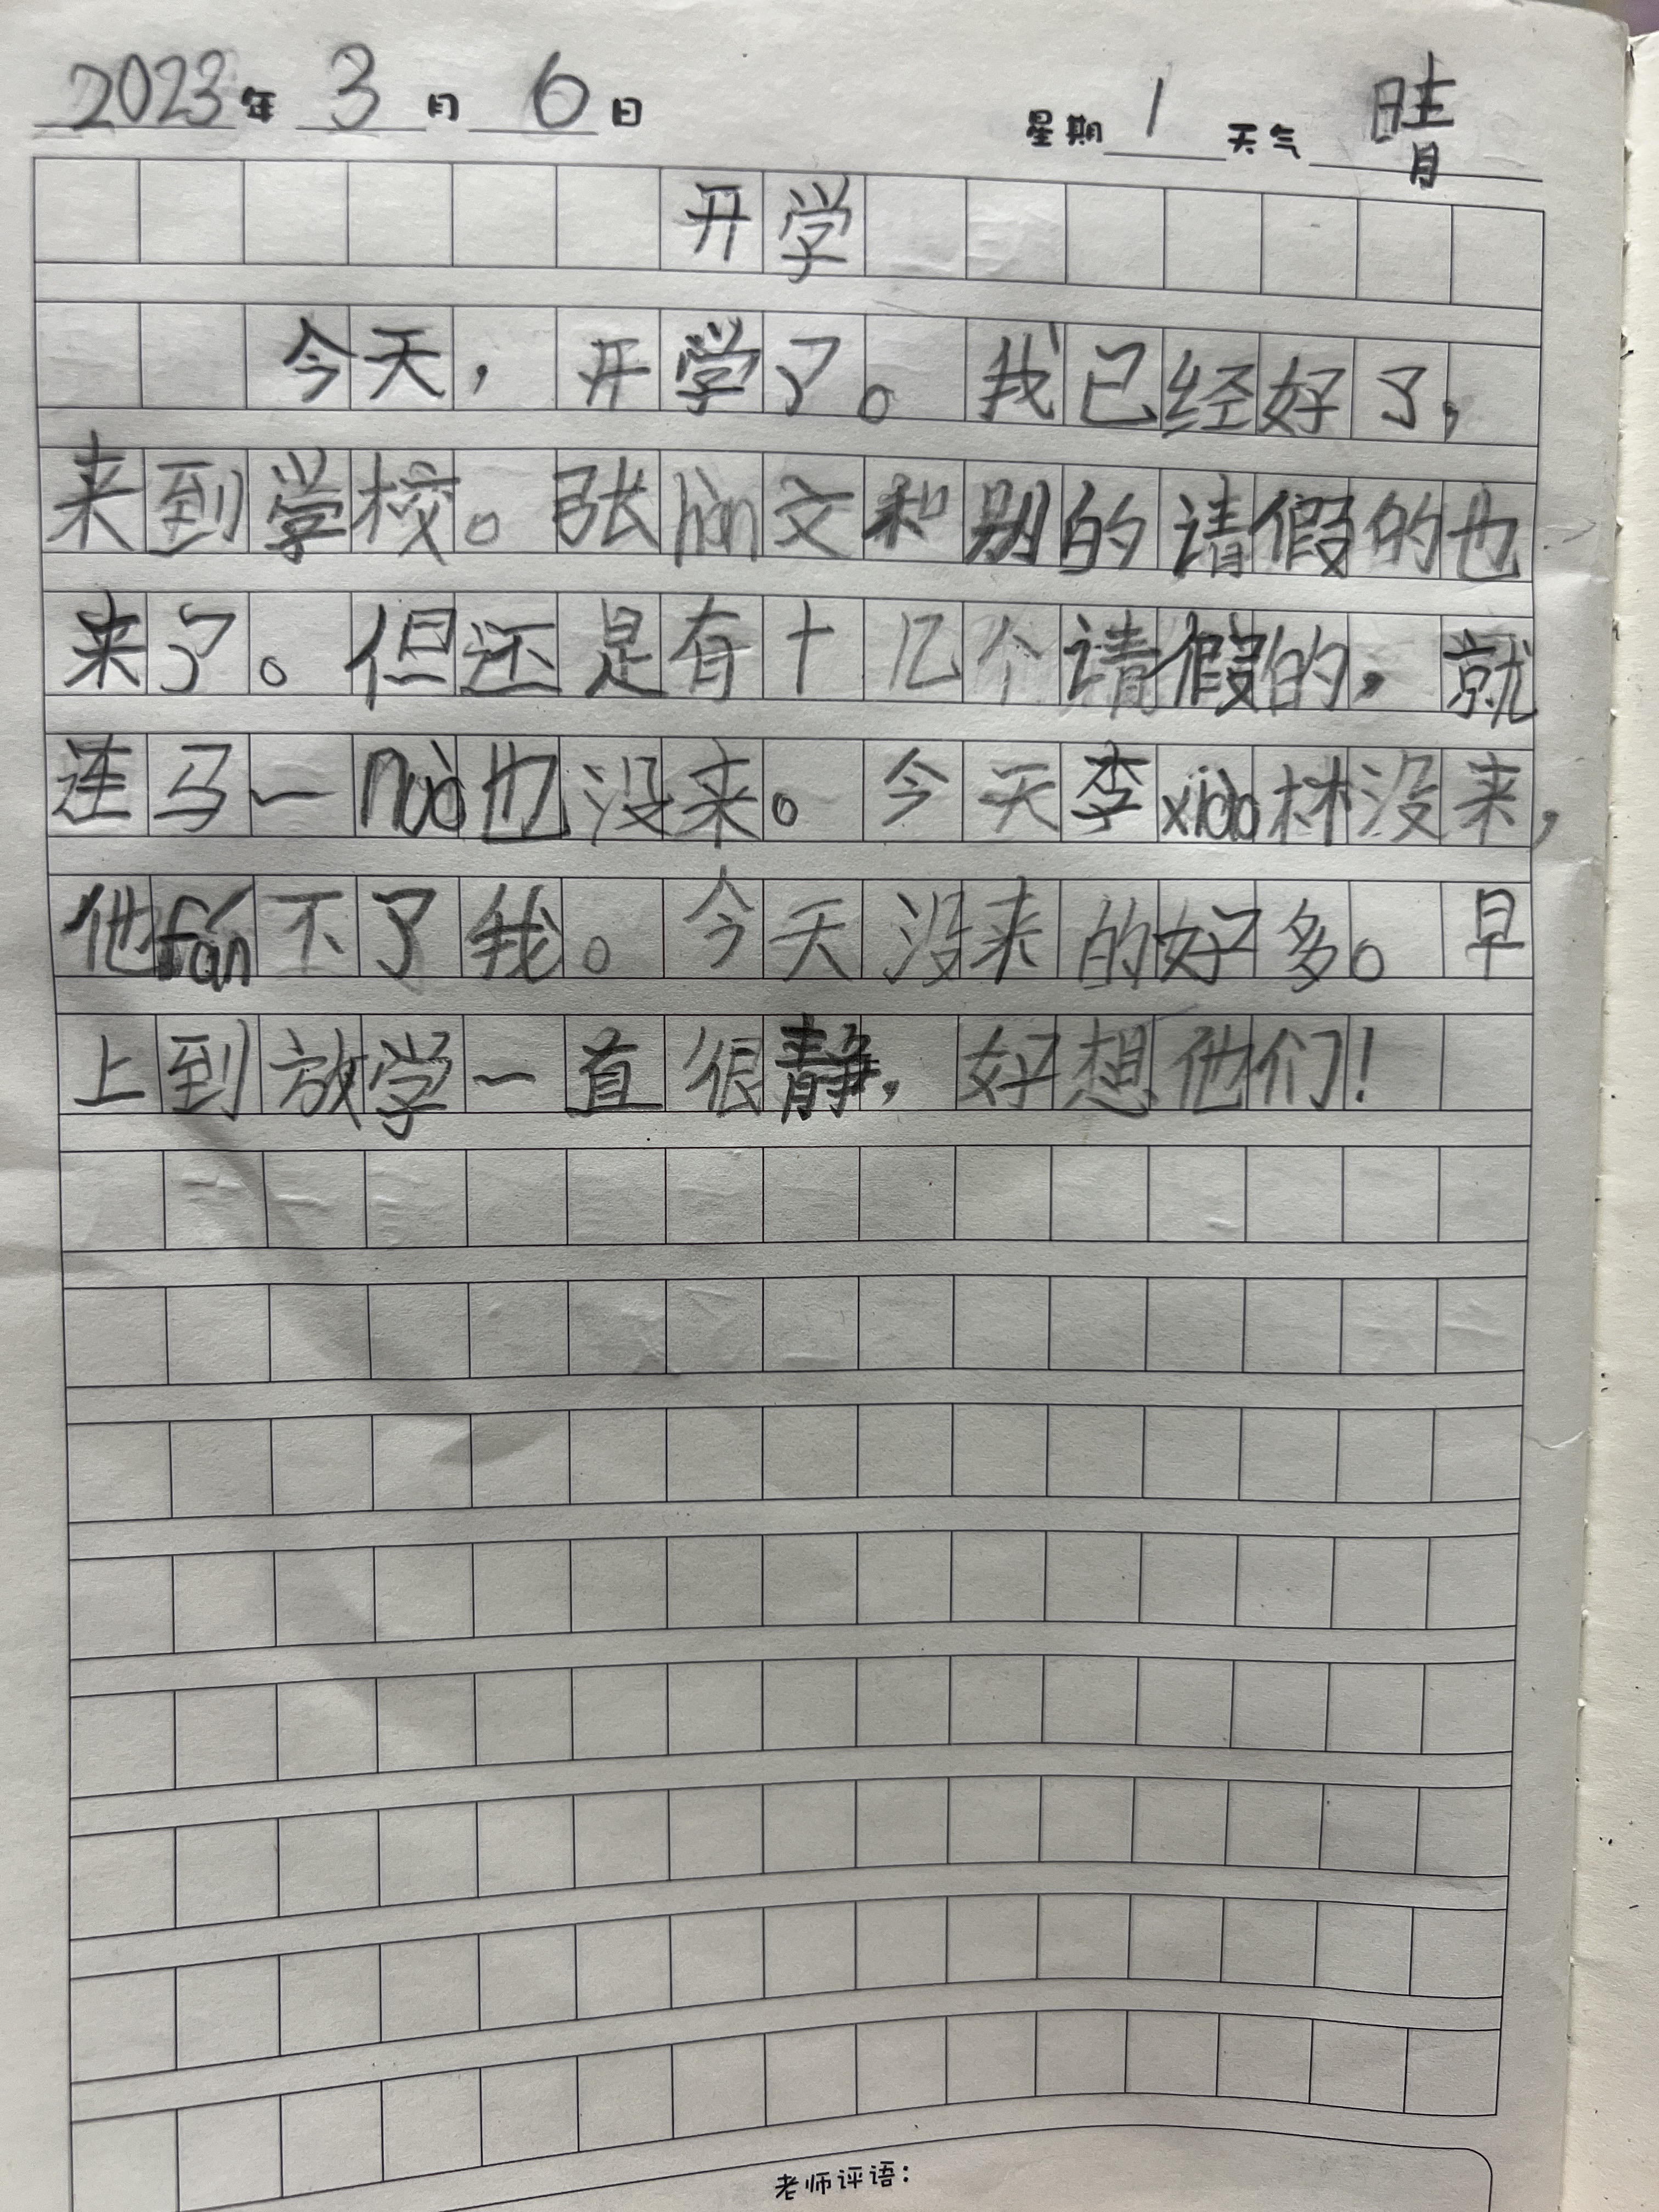 2023年3月6日 星期1 天气晴
开学
今天，开学了。我已经好了，
来到学校。张hàn文和别的请假的也
来了。但还是有十几个请假的，就
连马一nuò也没来。今天李xiǎo林没来，
他fán不了我。今天没来的好多。早
上到放学一直很静，好想他们！
老师评语：